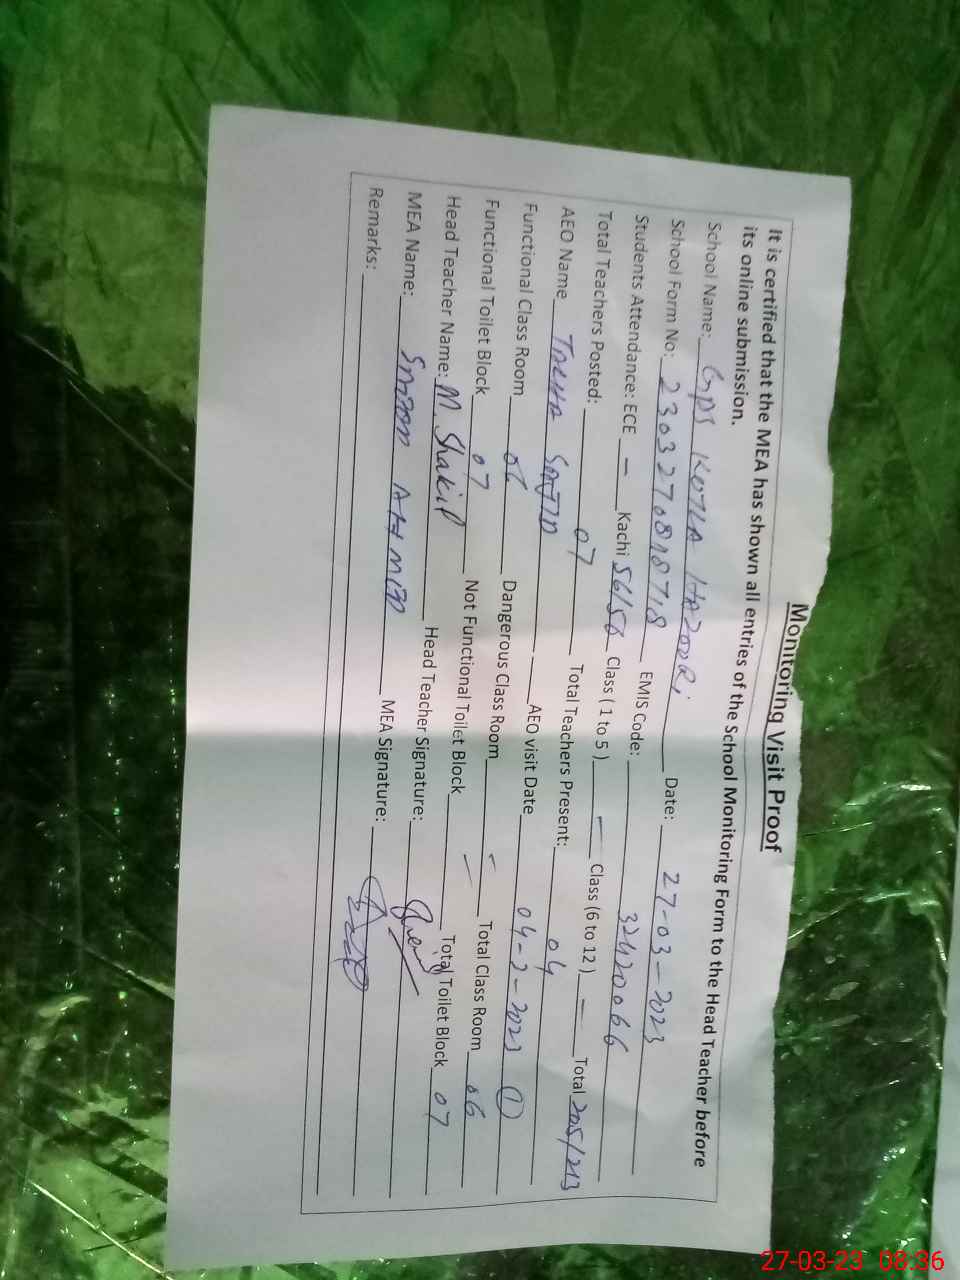 Monitoring Visit Proof
It is certified that the MEA has shown all entries of the School Monitoring Form to the Head Teacher before
its online submission.
School Name: GPS KOTLA Date: 27-03-2023
School Form No: EMIS Code: 32420066
Students Attendance: ECE - Kachi 56/56 Class ( 1 to 5 ) - Class (6 to 12 ) - Total 205/213
Total Teachers Posted: 07 Total Teachers Present: 04
AEO Name TALHA SAJID AEO visit Date 04-2-2023 (1)
Functional Class Room 06 Dangerous Class Room - Total Class Room 06
Functional Toilet Block 07 Not Functional Toilet Block - Total Toilet Block 07
Head Teacher Name: M. Shakil Head Teacher Signature:
MEA Name: AHMED MEA Signature:
Remarks:
27-03-23 08:36